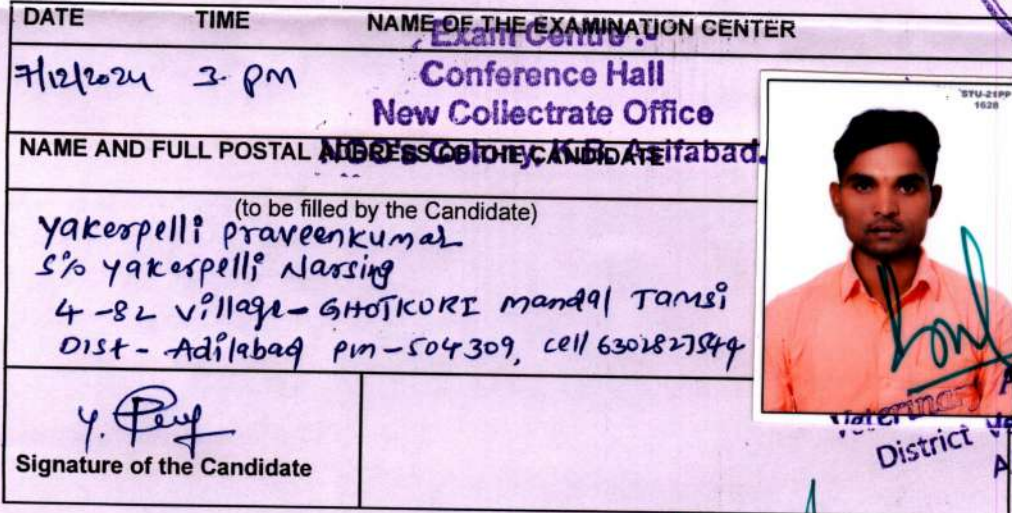 DATE TIME NAME OF THE EXAMINATION CENTER
Exam Centre :-
7/12/2024 3. PM Conference Hall
New Collectrate Office
NGO's Colony, K.B. Asifabad.
NAME AND FULL POSTAL ADDRESS OF THE CANDIDATE
(to be filled by the Candidate)
Yakerpelli Praveenkumar
S/o Yakerpelli Narsing
4-82 Village - GHOTKURI mandal Tamsi
Dist - Adilabad pin - 504309, cell 6302827544
STU-21PP
1628
Y.
Signature of the Candidate
Veterinary
District